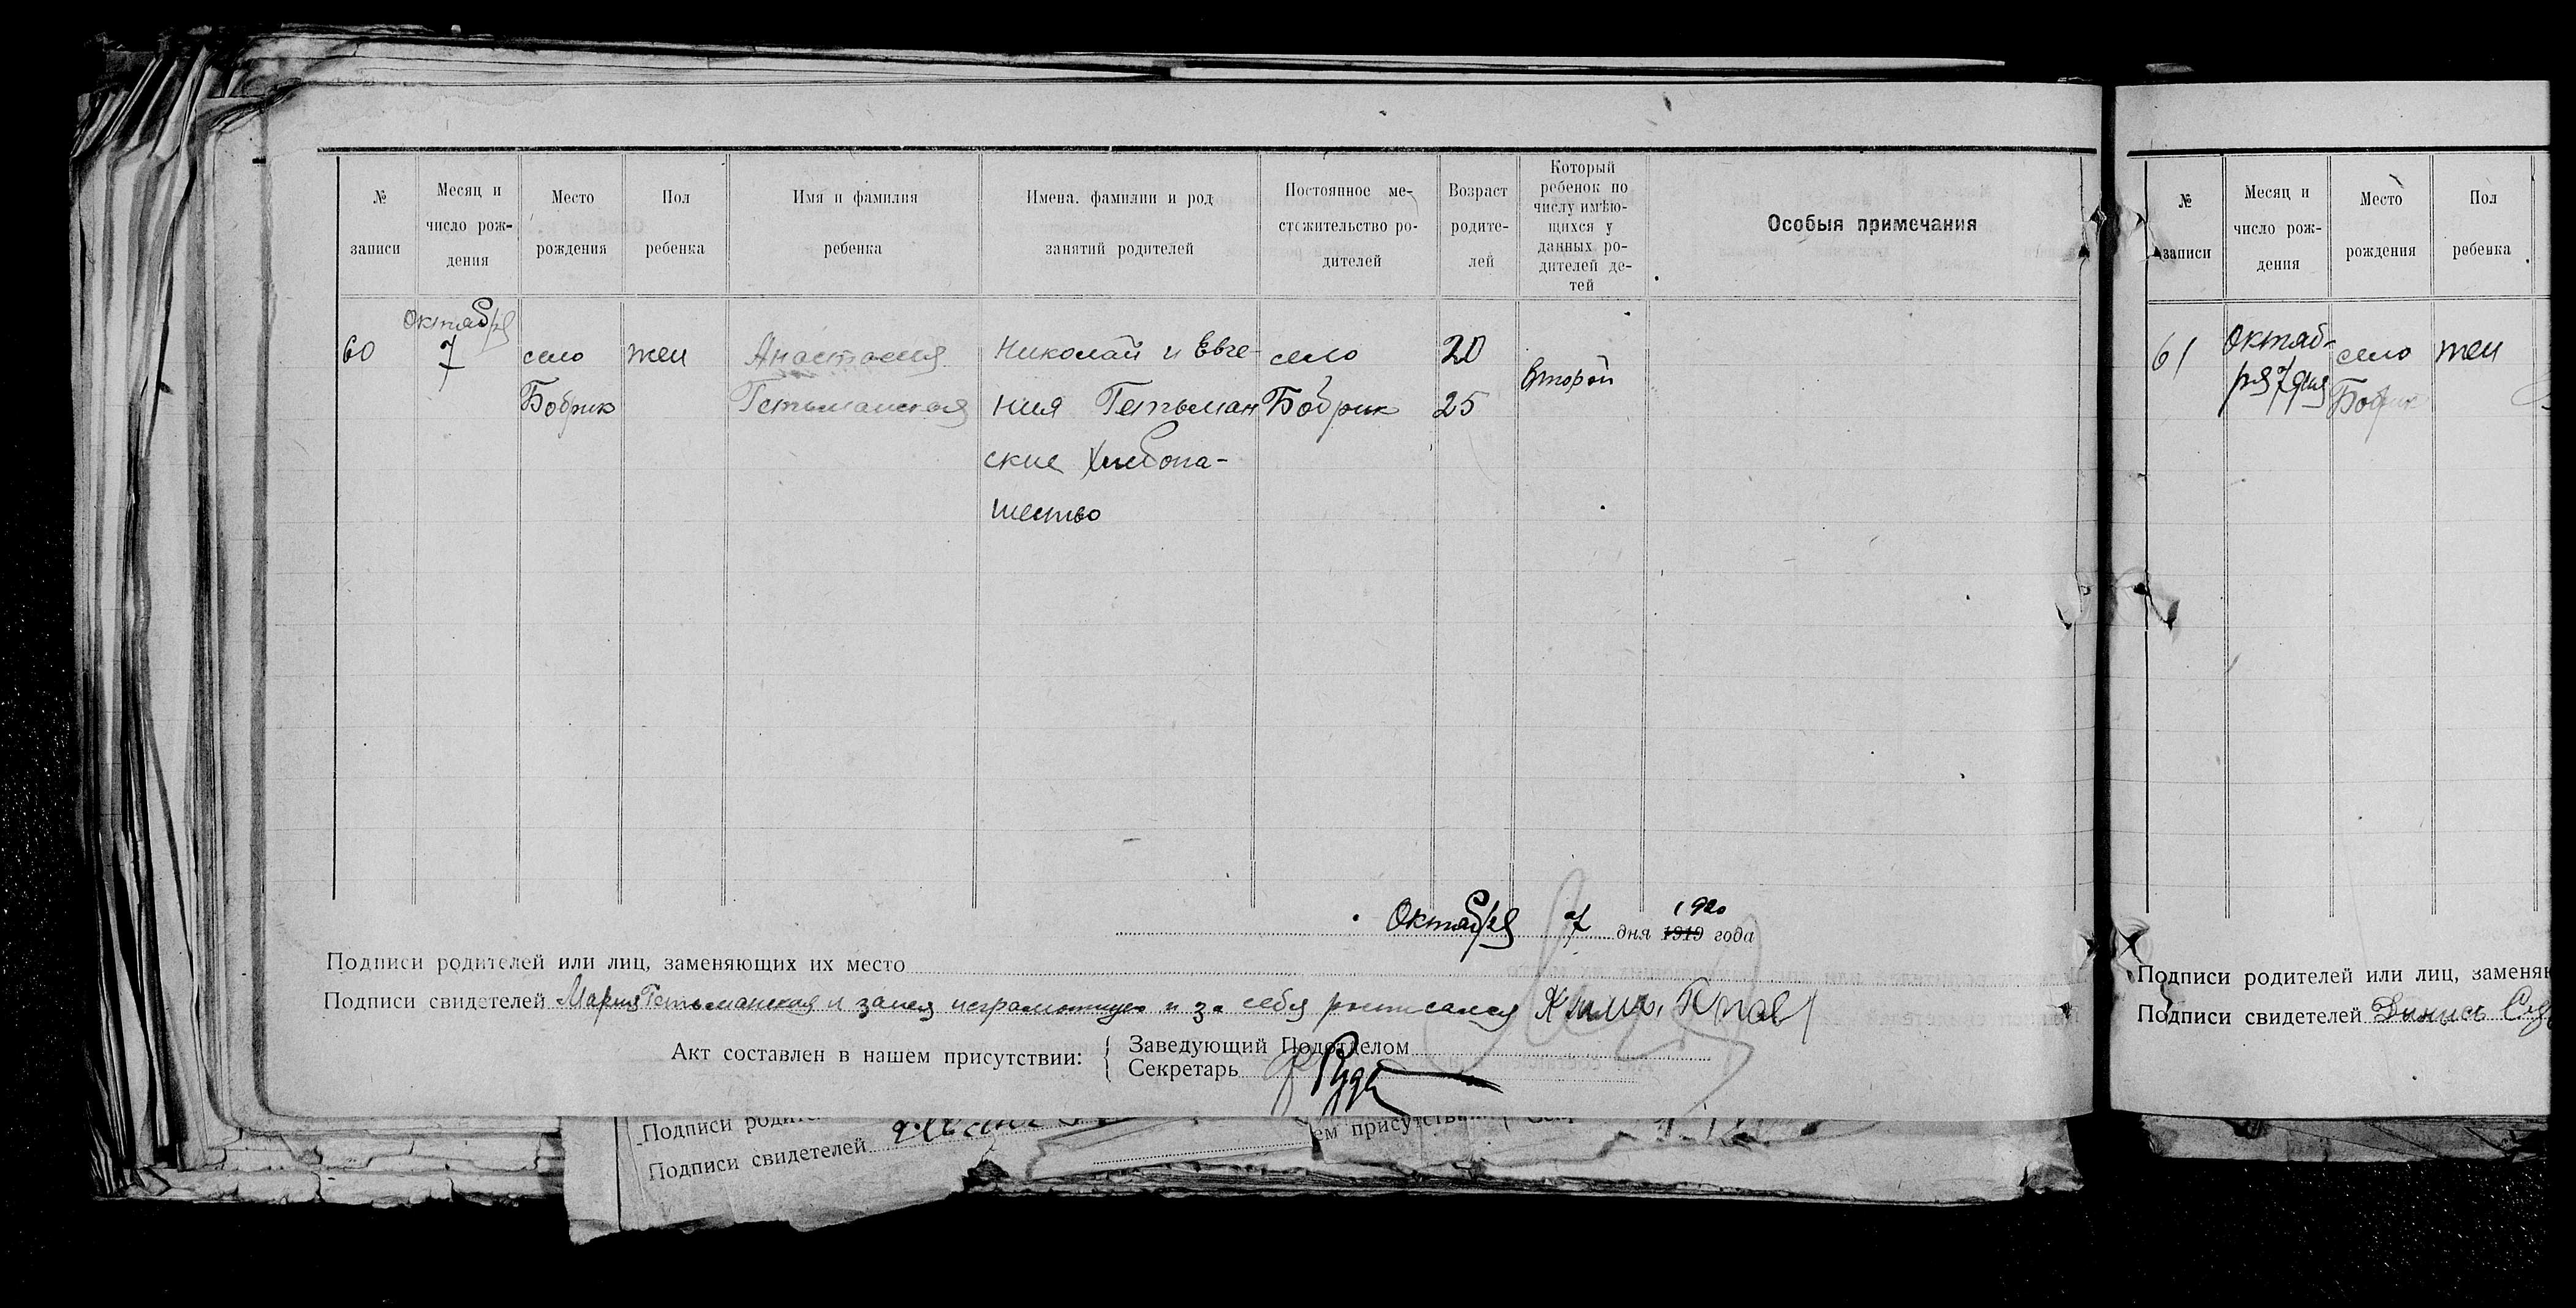 № записи
Месяц и число рож-дения
Место рождения
Пол ребенка
Имя и фамилия ребенка
Имена, фамилии и род занятий родителей
Постоянное ме-стожительство ро-дителей
Возраст родите-лей
Который ребенок по числу имѣю-щихся у данных ро-дителей де-тей
Особыя примечания
60
Октября
7
село
Бобрик
жен
Анастасия
Гетьманская
Николай и Евге-
ния Гетьман
ские Хлебопа-
шество
село
Бобрик
20
25
Второй
Октября 7 дня 1919 1920 года
Подписи родителей или лиц, заменяющих их место
Подписи свидетелей Мария Гетьманская и за нея неграмотную и за себя росписался
Акт составлен в нашем присутствии:
Заведующий Подотделом
Секретарь
Подписи свидетелей
ем присутств
№ записи
Месяц и число рож-дения
Место рождения
Пол ребенка
61
Октяб-
ря 7 дня
село
Бобрик
жен
Подписи родителей или лиц, заменя
Подписи свидетелей